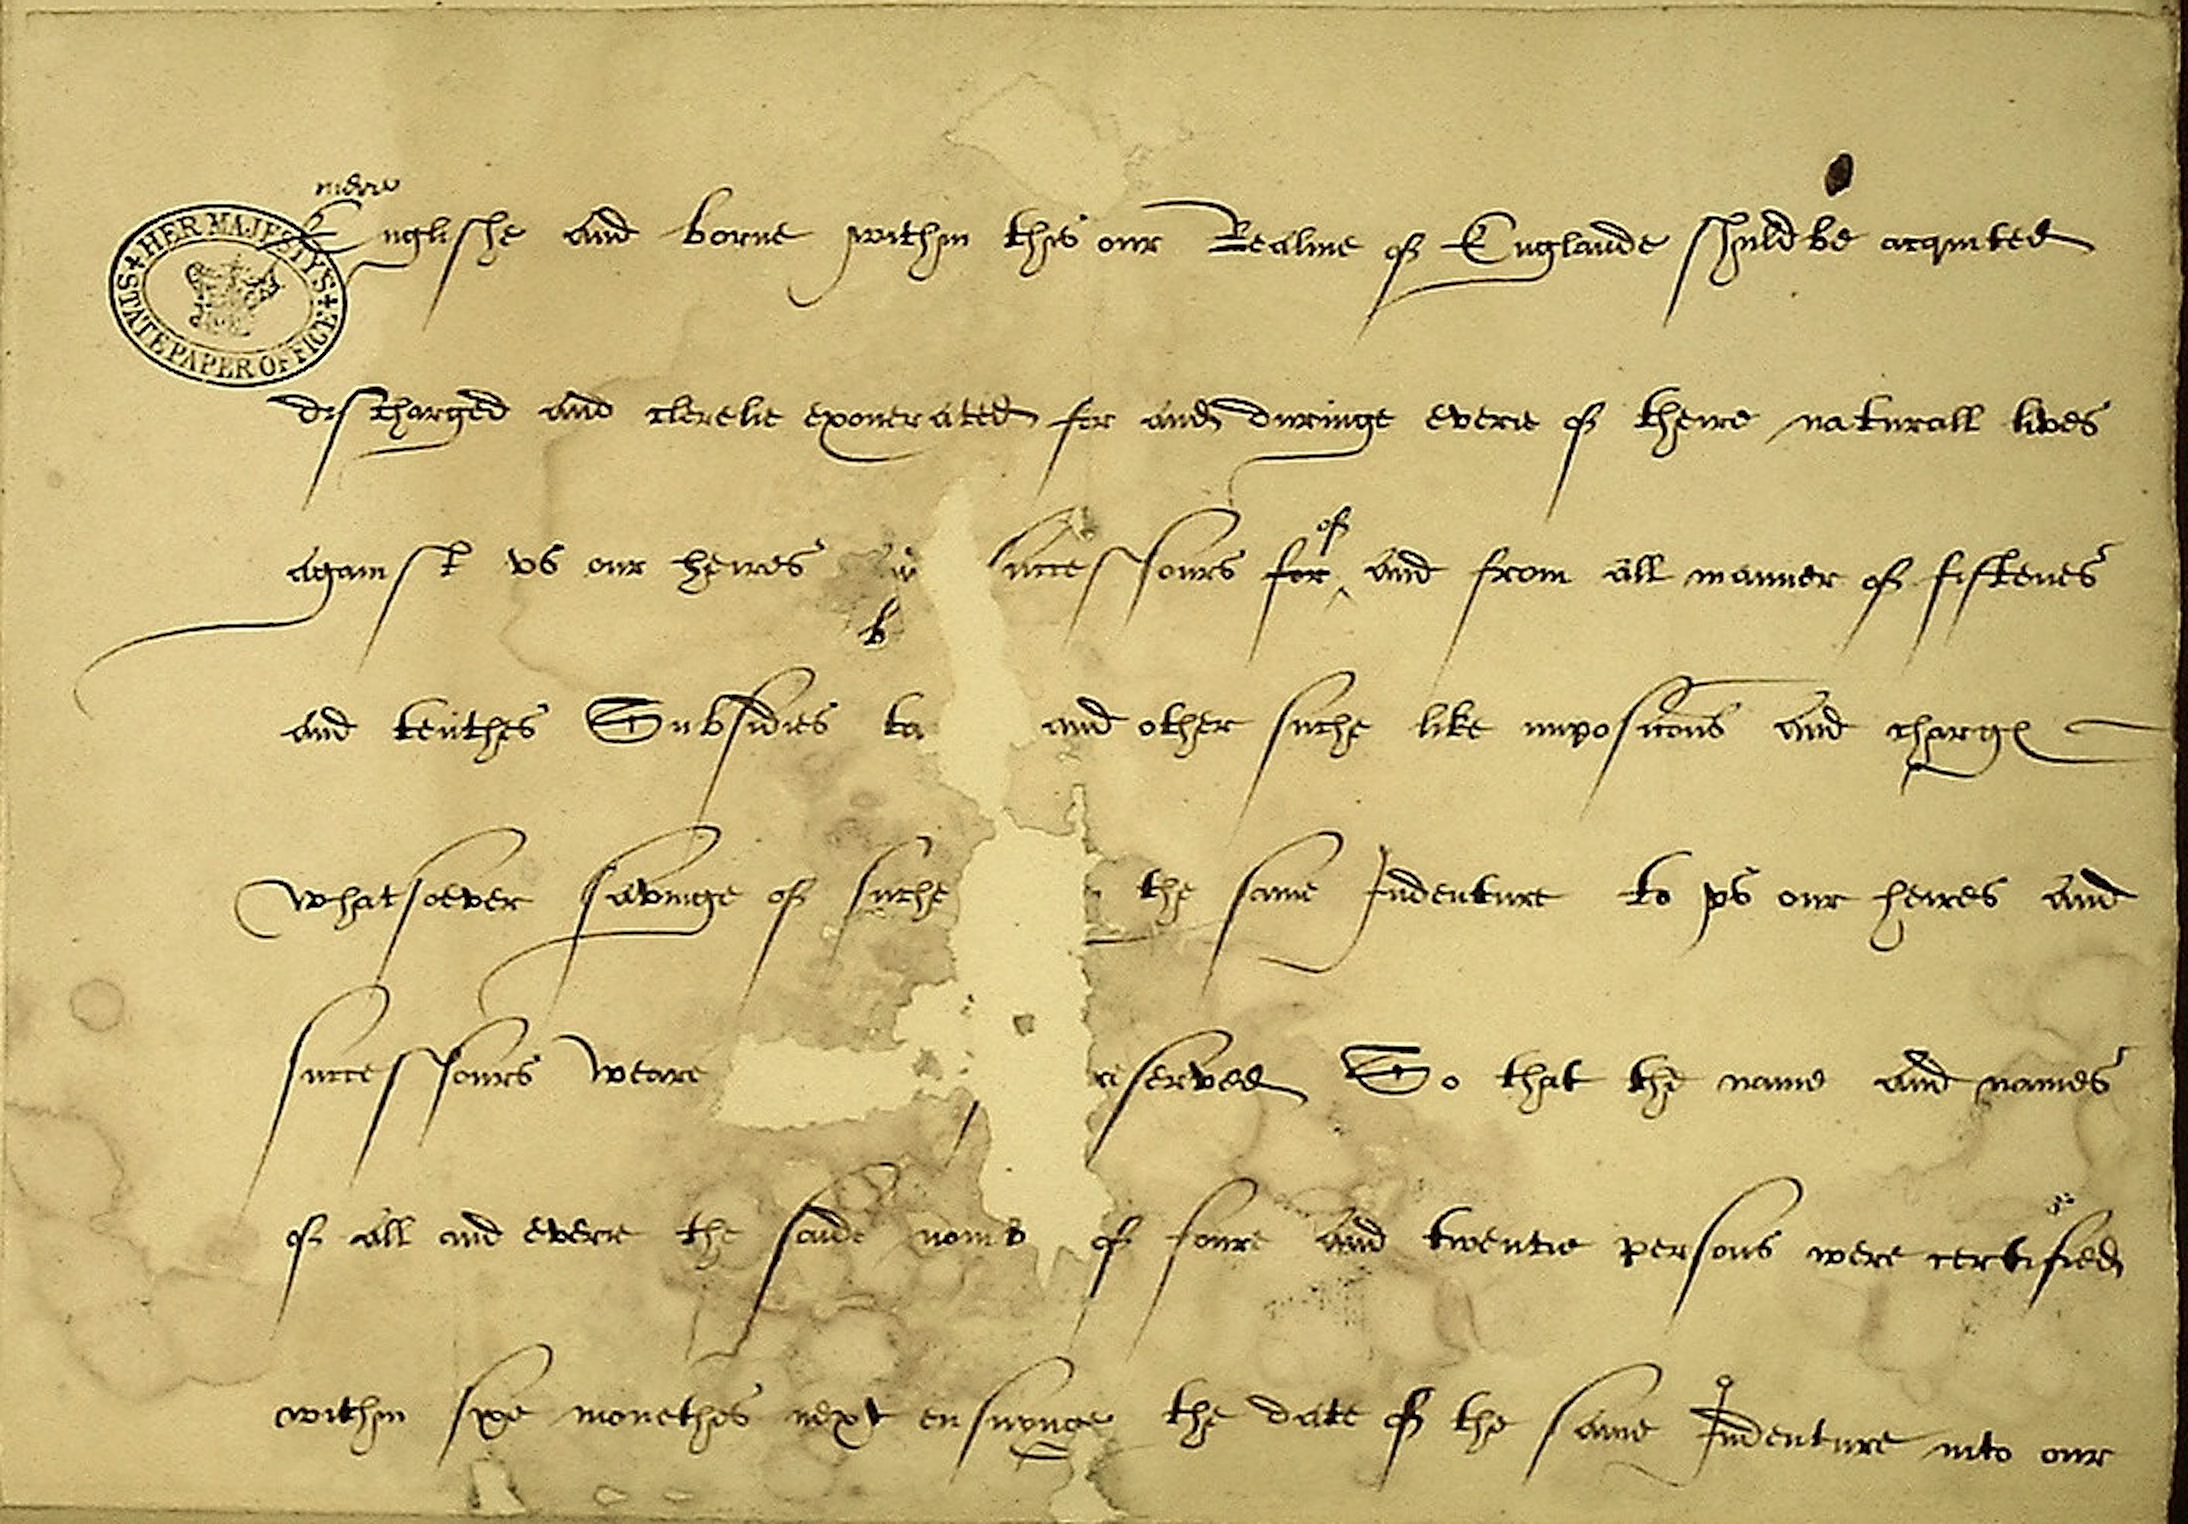 mere
HER MAJESTYS STATE PAPER OFFICE
Englishe and borne within this our Realme of Englande shuld be acquited
discharged and clerelie exonerated for and duringe everie of theire naturall lives
of
against vs our heires successours for and from all manner of fiftenes
and tenthes Subsidies ta and other suche like imposicons and charges
whatsoever savinge of suche the same Indenture to vs our heires and
successours weare reserved So that the name and names
of all and everie the saide nomb of foure and twentie persons were certified
within sixe monethes next ensuynge the date of the same Indenture into our